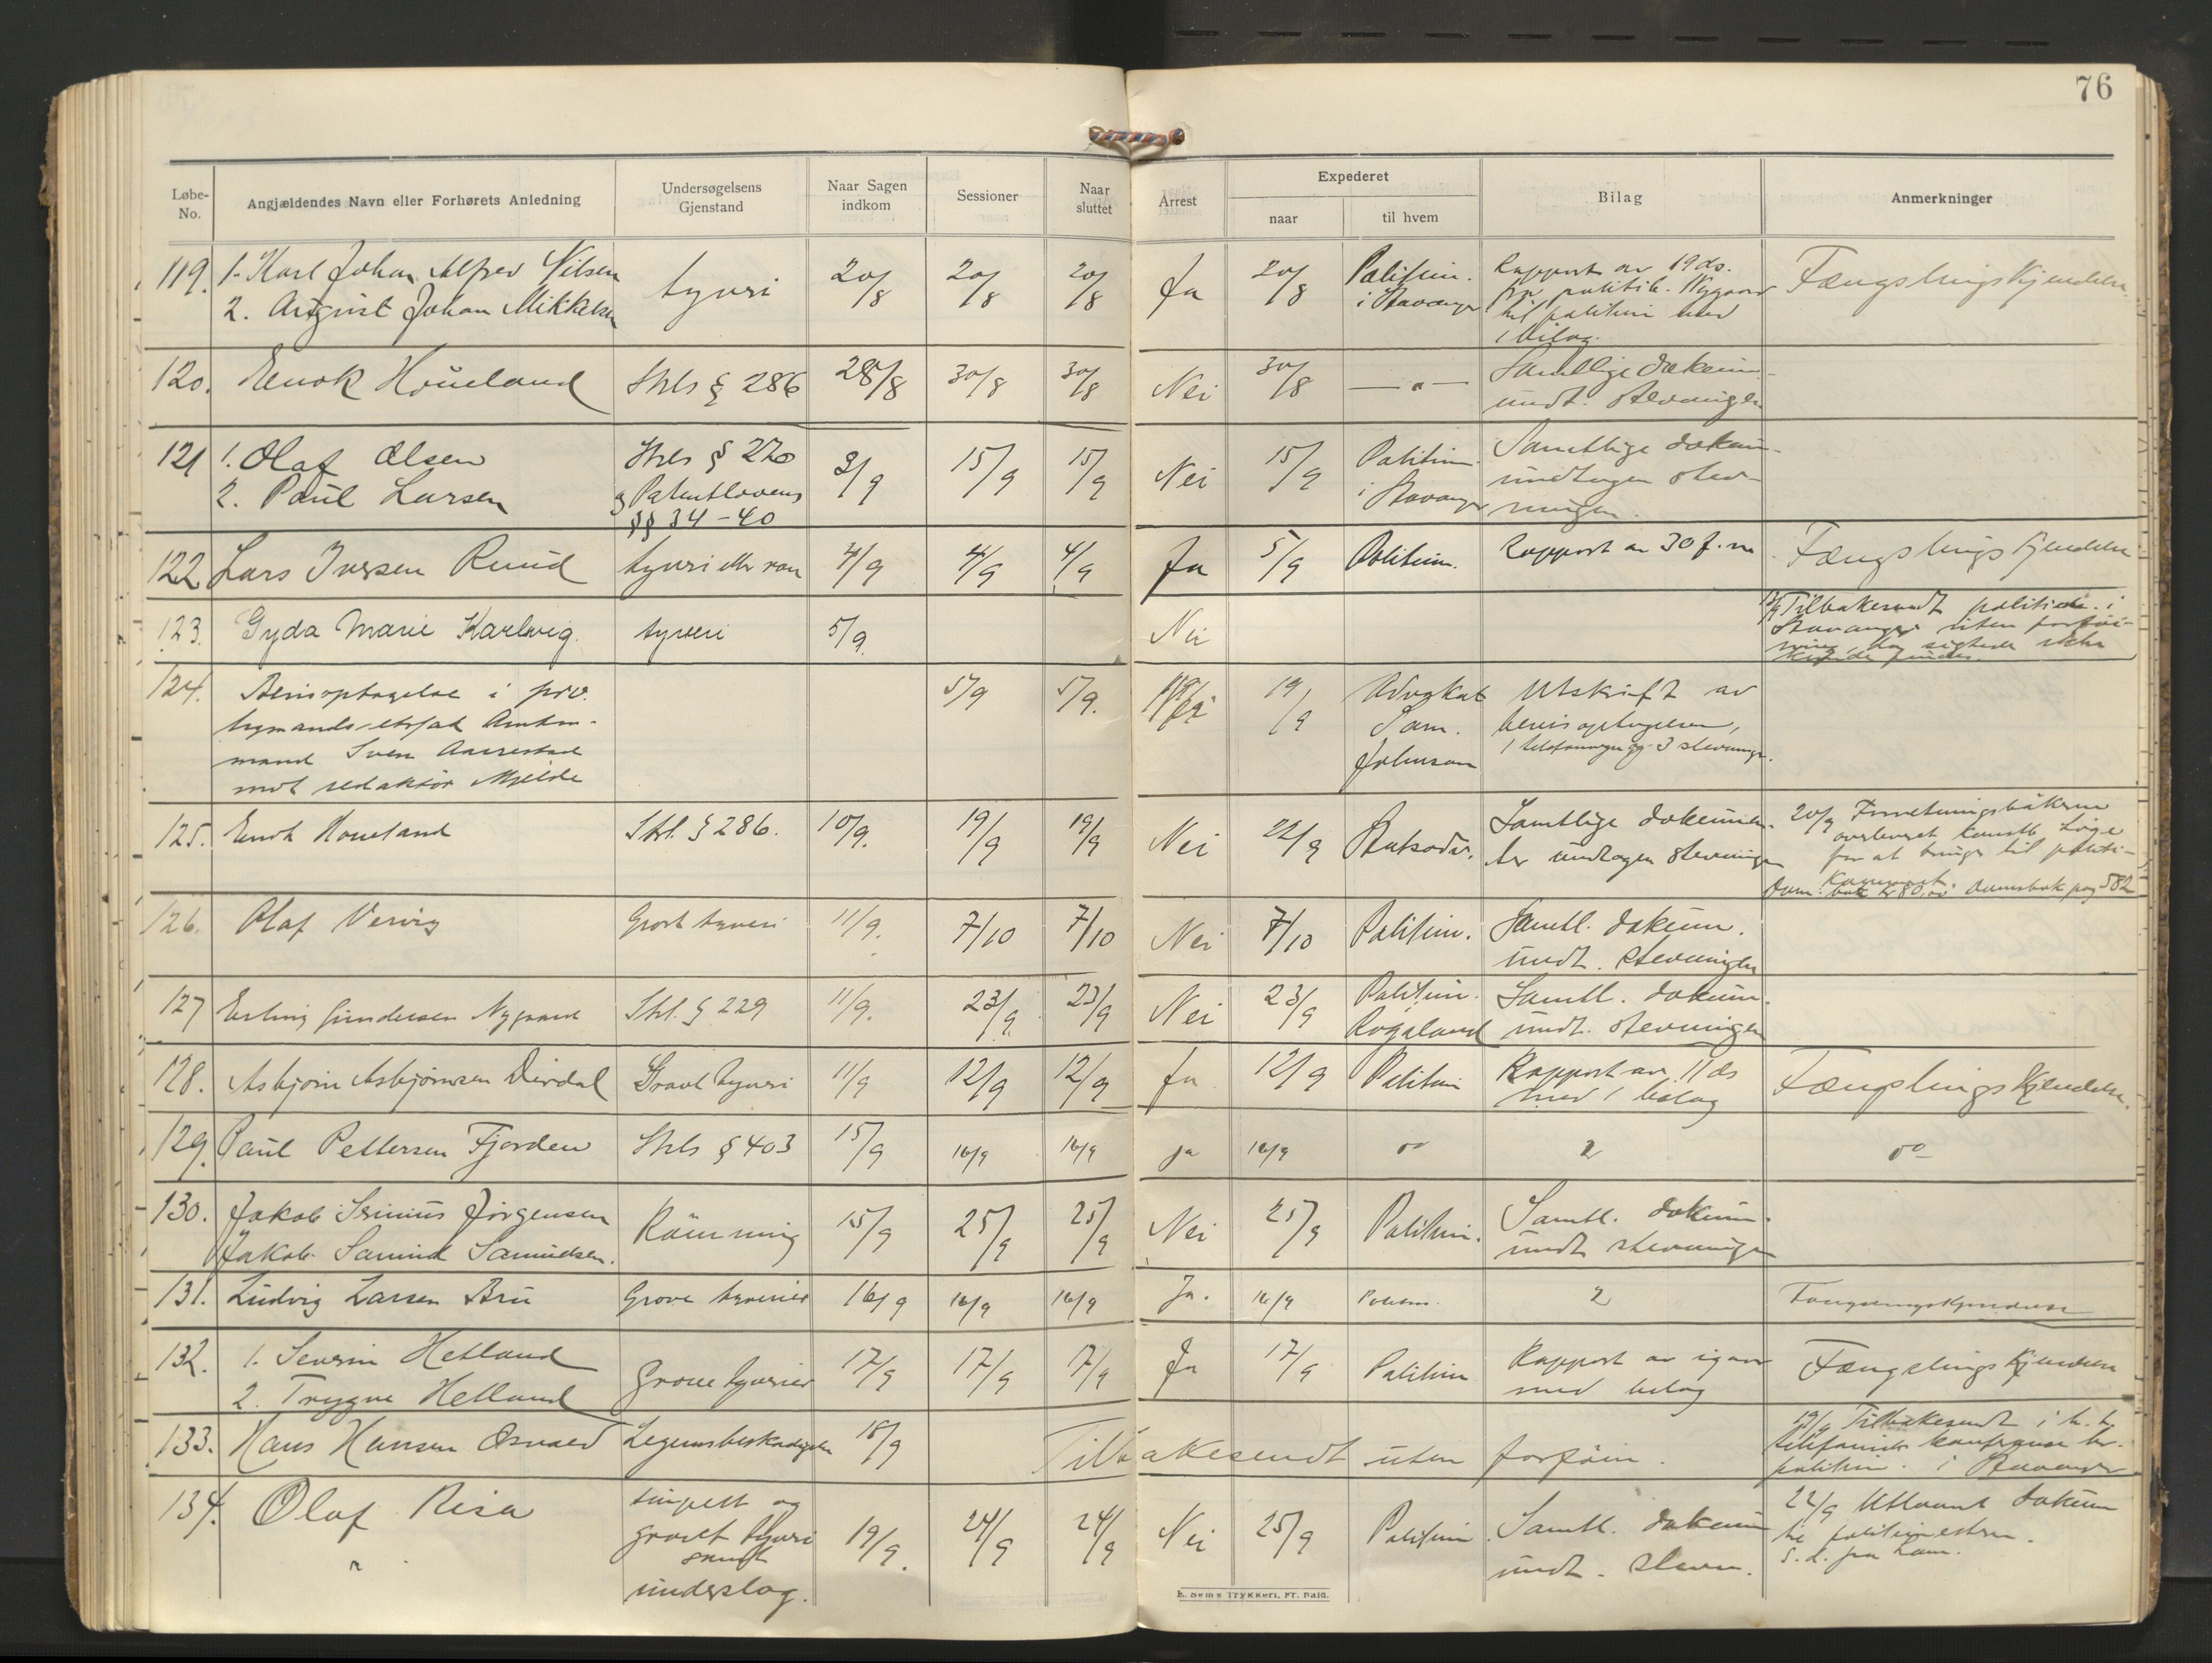 76
Løbe-No.
Angjældendes Navn eller Forhørets Anledning
Undersøgelsens Gjenstand
Naar Sagen indkom
Sessioner
Naar sluttet
Arrest
Expederet
naar
til hvem
Bilag
Anmerkninger
119. 1. Karl Johan Alfred Nilsen
2. August Johan Mikkelsen
tyveri
20/8 20/8 20/8 Ja 20/8
Politim.
i Stavanger
Rapport av 19 ds.
fra politib. Nygaard
til politim med
1 bilag.
Fængslingskjendelse.
120. Enok Höueland
Strls § 286
28/8 30/8 30/8 Nei 30/8 — " —
Samtlige dokum.
undt. stevningen
121 1. Olaf Olsen
2. Paul Larsen
Strls § 270
og Patentlovens
§§ 34-40
3/9 15/9 15/9 Nei 15/9
Politim.
i Stavanger
Samtlige dokum.
undtagen stev-
ningen.
122 Lars Iversen Ruud
tyveri eller ran
4/9 4/9 4/9 Ja 5/9 Politim.
Rapport av 30 f. m.
Fængslingskjendelse
123. Gyda Marie Karlsvig.
tyveri
5/9.
Nei
Tilbakesendt politim. i
Stavanger uten forföi-
ning, da sigtede ikke
124. Bevisoptagelse i priv.
mand Sven Aarrestad
mot redaktör Mjelde
5/9 5/9. Nei 19/9
Advokat
Sam.
Johnson
Utskrift av
bevisoptagelsen,
1 telefonregn. og 3 stevninger.
125. Enok Houeland
Strl. § 286.
10/9. 19/9 19/9 Nei 22/9 Statsadv.
Samtlige dokumen-
ter undtagen stevningen
20/9 Forretningsbökerne
overleveret konstb. Löge
for at bringe til politi-
kammeret.
Dom: bot kr 80,00. Domsbok pag 582
126. Olaf Vervig
Grovt tyveri
11/9. 7/10 7/10 Nei 7/10 Politim.
Samtl. dokum.
undt. stevningen
127 Erling Gundersen Nygaard
Strl. § 229
11/9. 23/9. 23/9 Nei 23/9
Politim.
Rogaland
Samtl. dokum.
undt. stevningen
128. Asbjörn Asbjörnsen Dirdal
Grovt tyveri
11/9 12/9 12/9 Ja 12/9 Politim
Rapport av 11 ds
med 1 bilag
Fængslingskjendelse.
129. Paul Pettersen Fjorden
Strls § 403
15/9 16/9 16/9 ja 16/9 do 2 do
130. Jakob Severinus Jörgensen
Jakob Samund Samuelsen.
Römning
15/9 25/9 25/9 Nei 25/9 Politim.
Samtl. dokum.
undt stevningen
131. Ludvig Larsen Bru
Grove tyverier
16/9 16/9 16/9 Ja. 16/9 Politim. 2
Fængslingskjendelse
132. 1. Severin Hetland
2. Trygve Hetland
Grove tyverier
17/9 17/9 17/9 Ja 17/9 Politim
Rapport av igaar
med bilag
Fængslingskjendelse
133. Hans Hansen Osvaed
Legemsbeskadigelse
18/9
Tilbakesendt uten forföin.
19/9 Tilbakesendt i h. t.
telefonisk konferanse m.
politim. i Stavanger
134. Olaf Risa
"
simpelt og
grovt tyveri
samt
underslag.
19/9. 24/9 24/9 Nei 25/9 Politim
Samtl. dokum
undt. stevn.
22/9 Utlaant dokum
til politimesteren.
S. d. fra ham.
E. Sems Trykkeri, Fr.hald.